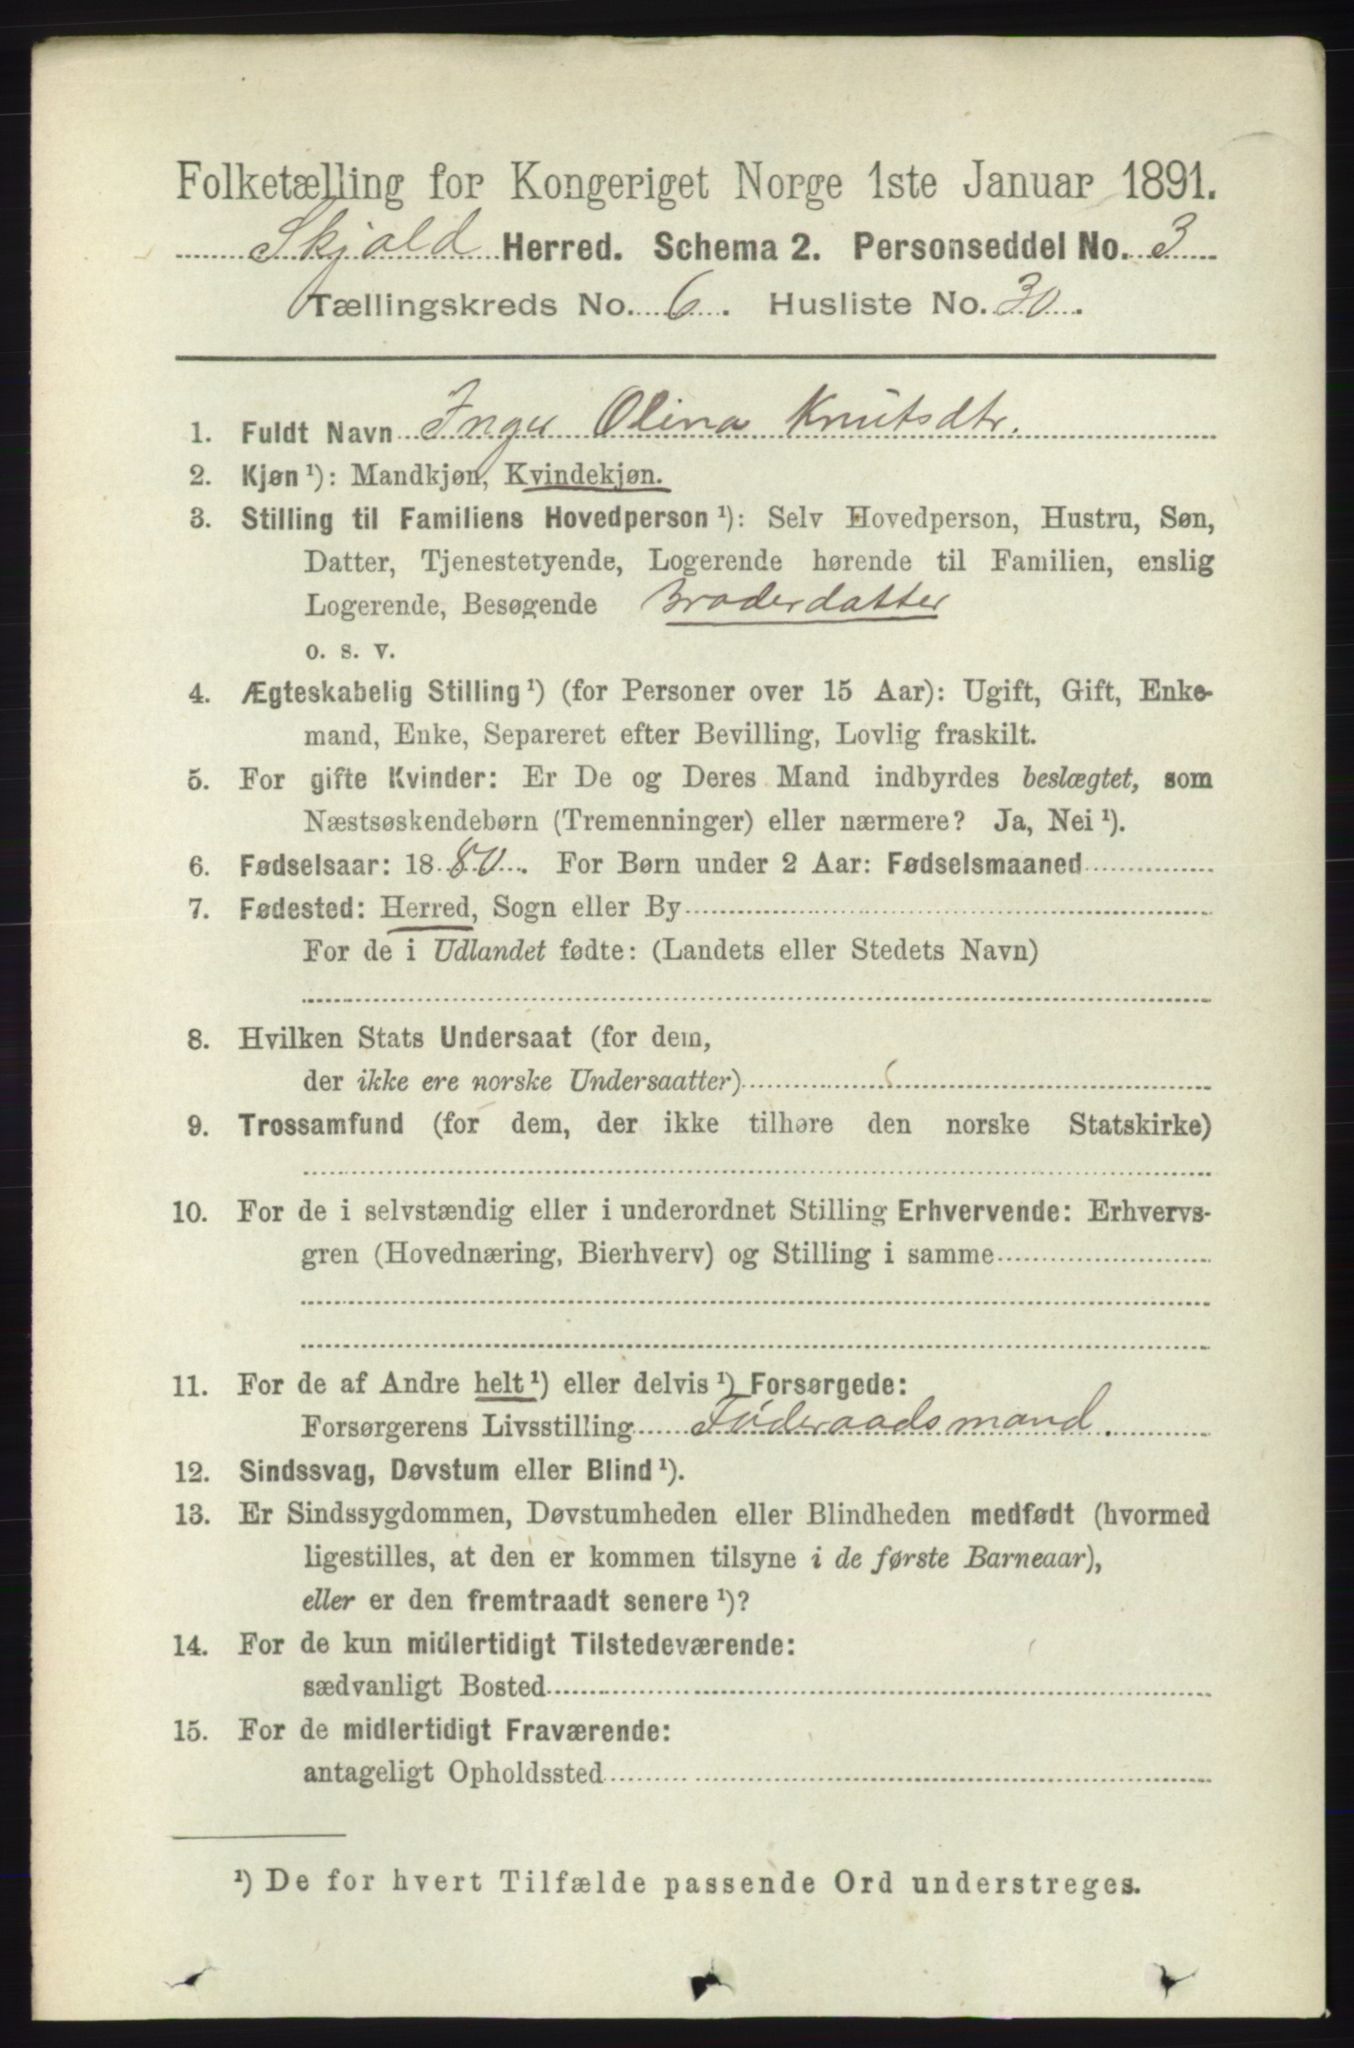 Folketælling for Kongeriget Norge 1ste Januar 1891.
Skjold Herred. Schema 2. Personseddel No. 3
Tællingskreds No. 6. Husliste No. 30.
1. Fuldt Navn Inger Olina Knutsdtr.
2. Kjøn ¹): Mandkjøn, Kvindekjøn.
3. Stilling til Familiens Hovedperson ¹): Selv Hovedperson, Hustru, Søn,
Datter, Tjenestetyende, Logerende hørende til Familien, enslig
Logerende, Besøgende Broderdatter
o. s. v.
4. Ægteskabelig Stilling ¹) (for Personer over 15 Aar): Ugift, Gift, Enke-
mand, Enke, Separeret efter Bevilling, Lovlig fraskilt.
5. For gifte Kvinder: Er De og Deres Mand indbyrdes beslægtet, som
Næstsøskendebørn (Tremenninger) eller nærmere? Ja, Nei ¹).
6. Fødselsaar: 1880. For Børn under 2 Aar: Fødselsmaaned
7. Fødested: Herred, Sogn eller By
For de i Udlandet fødte: (Landets eller Stedets Navn)
8. Hvilken Stats Undersaat (for dem,
der ikke ere norske Undersaatter)
9. Trossamfund (for dem, der ikke tilhøre den norske Statskirke)
10. For de i selvstændig eller i underordnet Stilling Erhvervende: Erhvervs-
gren (Hovednæring, Bierhverv) og Stilling i samme
11. For de af Andre helt ¹) eller delvis ¹) Forsørgede:
Forsørgerens Livsstilling Föderaadsmand.
12. Sindssvag, Døvstum eller Blind ¹).
13. Er Sindssygdommen, Døvstumheden eller Blindheden medfødt (hvormed
ligestilles, at den er kommen tilsyne i de første Barneaar),
eller er den fremtraadt senere ¹)?
14. For de kun midlertidigt Tilstedeværende:
sædvanligt Bosted
15. For de midlertidigt Fraværende:
antageligt Opholdssted
¹) De for hvert Tilfælde passende Ord understreges.